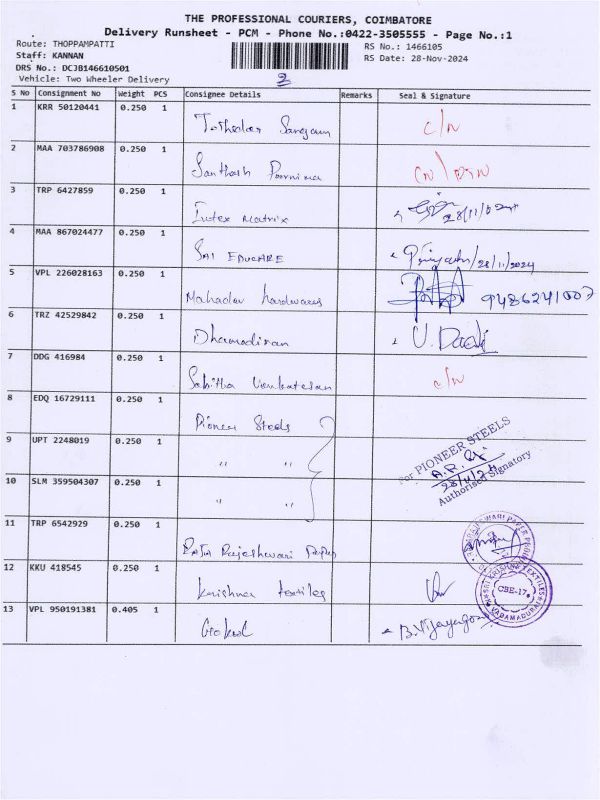 THE PROFESSIONAL COURIERS, COIMBATORE
Delivery Runsheet - PCM - Phone No.:0422-3505555 - Page No.:1
Route: THOPPAMPATTI RS No.: 1466105
Staff: KANNAN RS Date: 28-Nov-2024
DRS No.: DCJB146610501
Vehicle: Two Wheeler Delivery 2
S No Consignment No Weight PCS Consignee Details Remarks Seal & Signature
1 KRR 50120441 0.250 1
C/N
2 MAA 703786908 0.250 1
Santhosh Poornima
3 TRP 6427859 0.250 1
Intex Matrix 28/11/
4 MAA 867024477 0.250 1
SAI EDUCARE 28/11/2024
5 VPL 226028163 0.250 1
Mahadev hardwares 9486241007
6 TRZ 42529842 0.250 1
U.
7 DDG 416984 0.250 1
Sabitha Venkatesan C/N
8 EDQ 16729111 0.250 1
Pioneer Steels
9 UPT 2248019 0.250 1
" "
For PIONEER STEELS
10 SLM 359504307 0.250 1
" "
Authorised Signatory
11 TRP 6542929 0.250 1
Rajeshwari
12 KKU 418545 0.250 1
Krishna textiles
SRI KRISHNA TEXTILES
CBE-17.
VADAMADURAI
13 VPL 950191381 0.405 1
Gokul B.